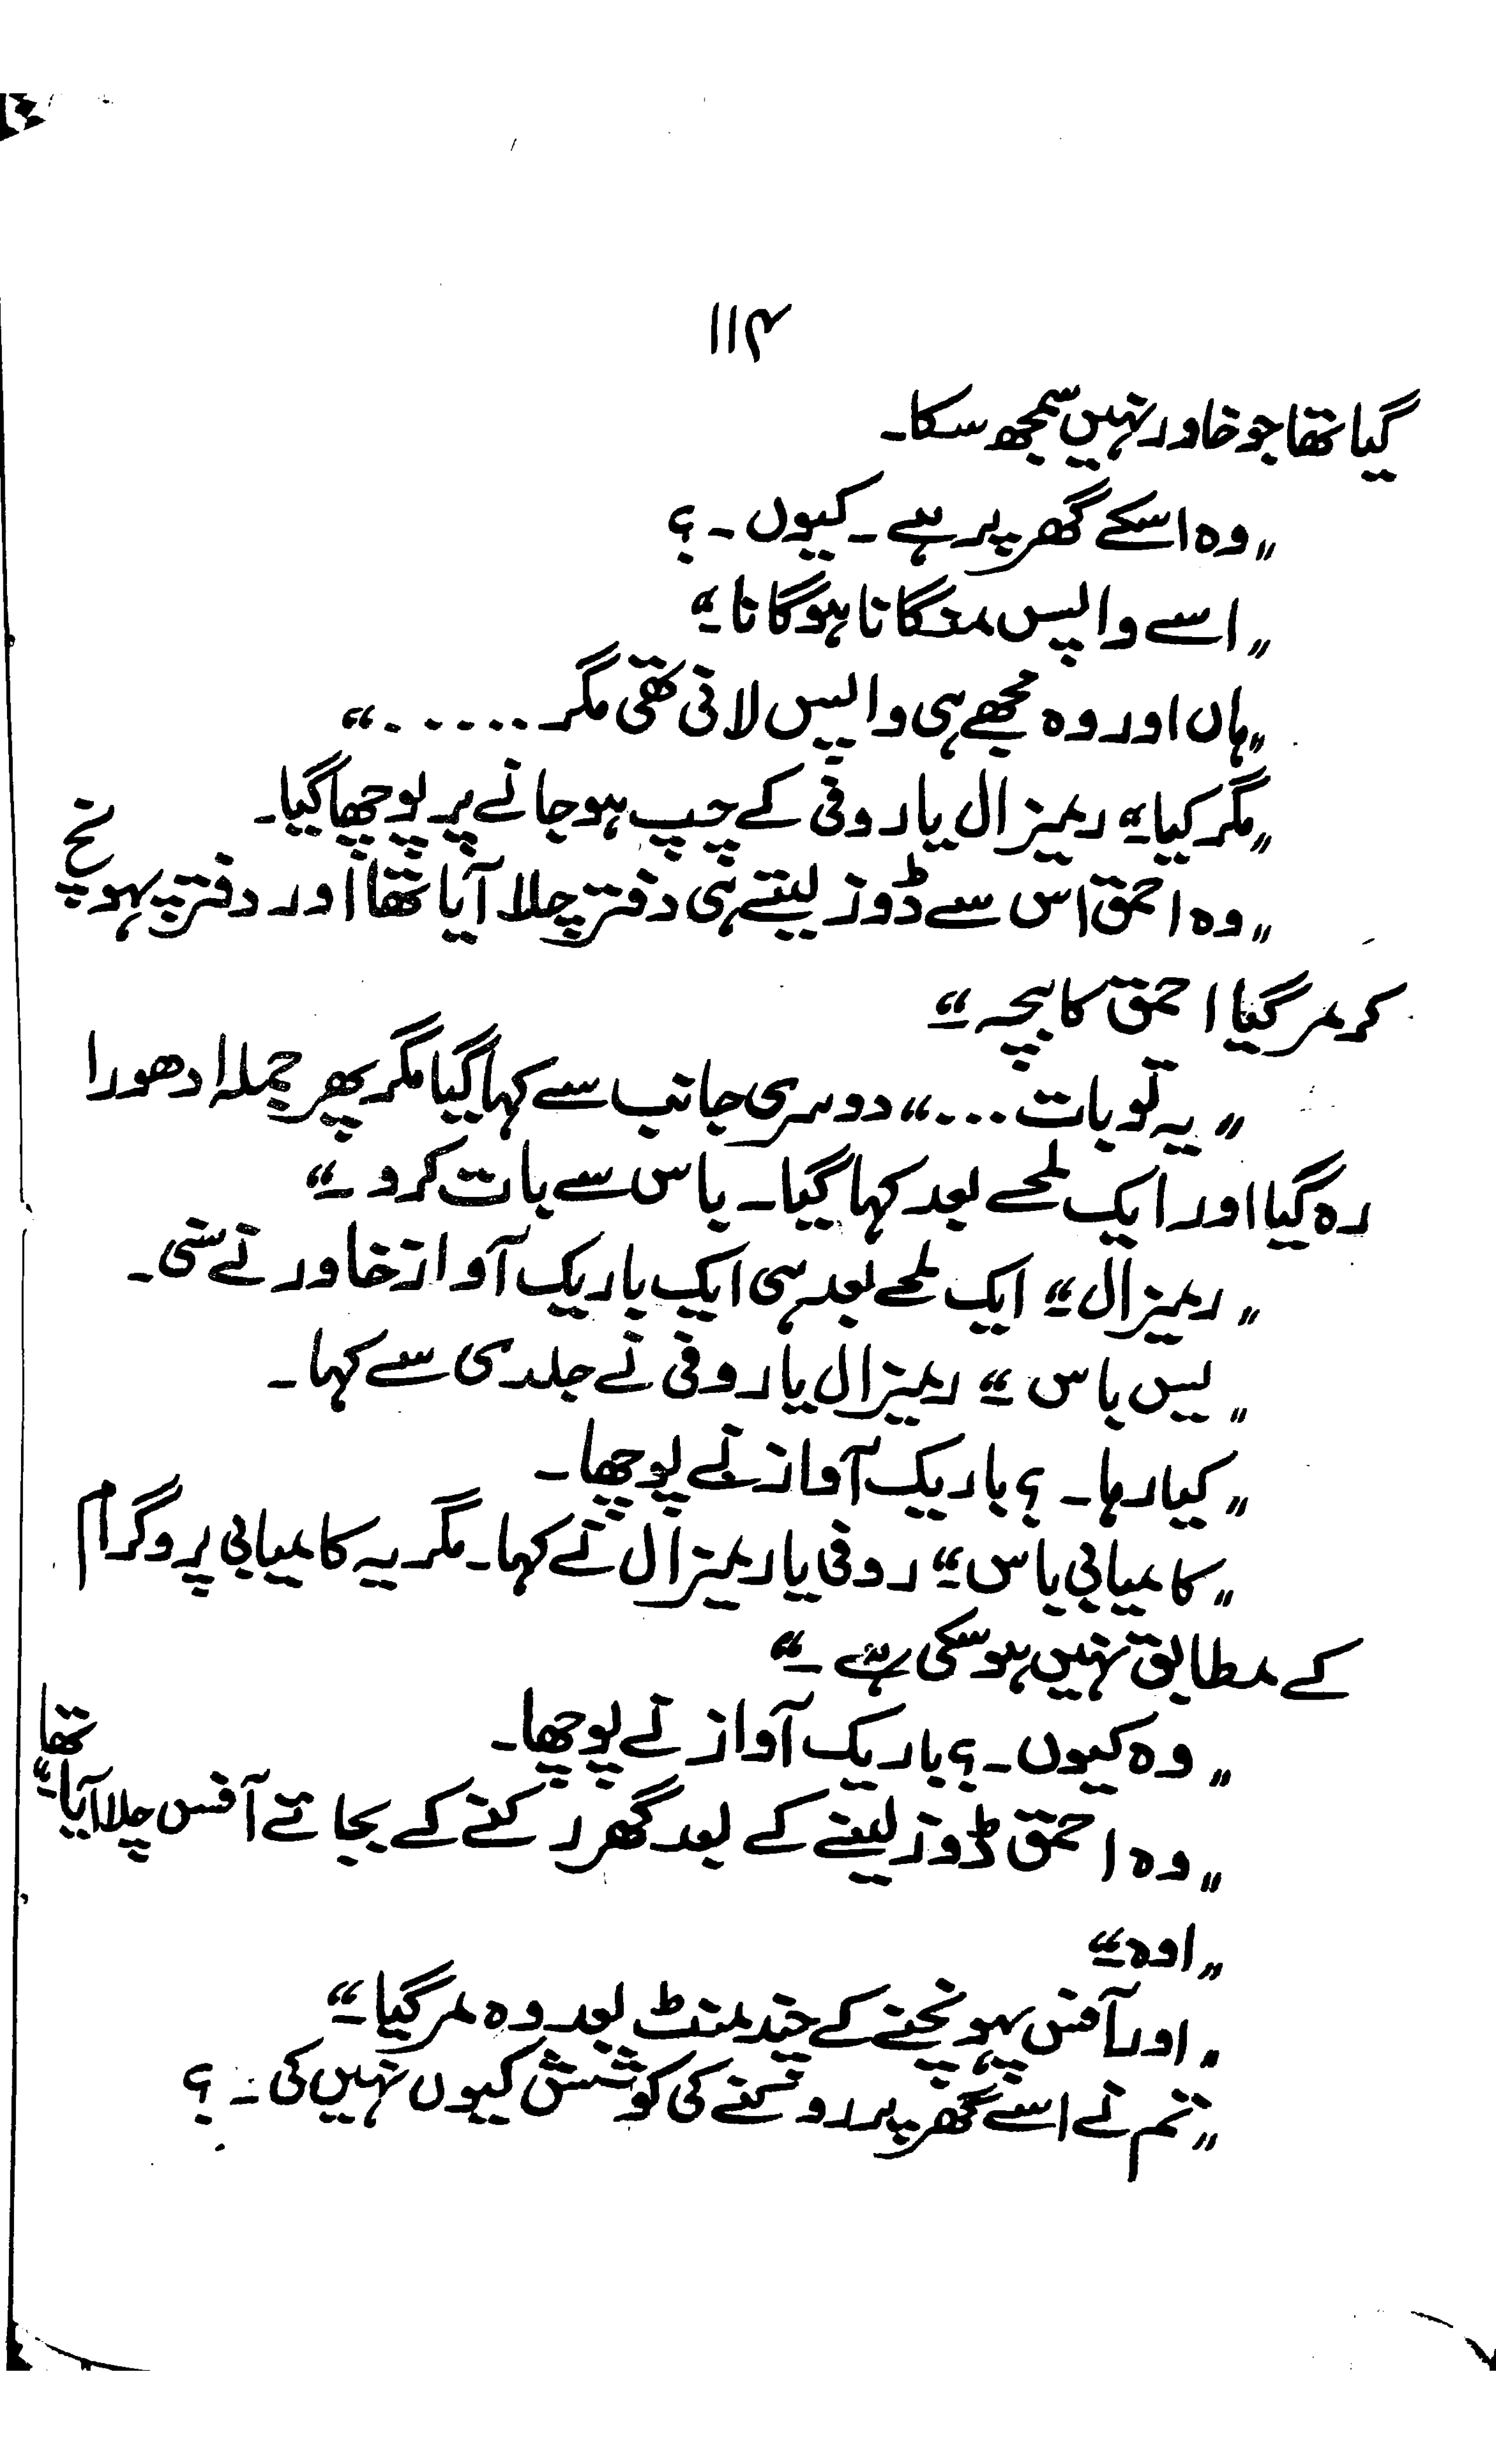 ۱۱۴
گیا تھا جو خاور نہیں سمجھ سکا۔
"وہ اسکے گھر پر ہے۔ کیوں۔؟
"اسے واپس منگانا ہوگا نا۔"
"ہاں اور وہ مجھے ہی واپس لانی تھی مگر ......"
"مگر کیا۔" ریمزال یا روفی کے چپ ہو جانے پر پوچھا گیا۔
"وہ احمق اس سے ڈوز لیتے ہی دفتر چلا آیا تھا اور دفتر پہونچ
کر مر گیا احمق کا بچہ۔"
"یہ تو بات ...." دوسری جانب سے کہا گیا مگر پھر جملہ ادھورا
رہ گیا اور ایک لمحے بعد کہا گیا۔ باس سے بات کرو۔"
"ریمزال۔" ایک لمحے بعد ہی ایک باریک آواز خاور نے سنی۔
"لیس باس۔" ریمزال یا روفی نے جلدی سے کہا۔
"کیا رہا۔؟ باریک آواز نے پوچھا۔
"کامیابی باس۔" روفی یا ریمزال نے کہا۔ مگر یہ کامیابی پروگرام
کے مطابق نہیں ہو سکی ہے۔"
"وہ کیوں۔؟ باریک آواز نے پوچھا۔
"وہ احمق ڈوز لینے کے بعد گھر رکنے کے بجائے آفس چلا آیا تھا۔"
"اوہ۔"
"اور آفس پہونچنے کے چند منٹ بعد وہ مر گیا۔"
"تم نے اسے گھر پر روکنے کی کوشش کیوں نہیں کی۔؟